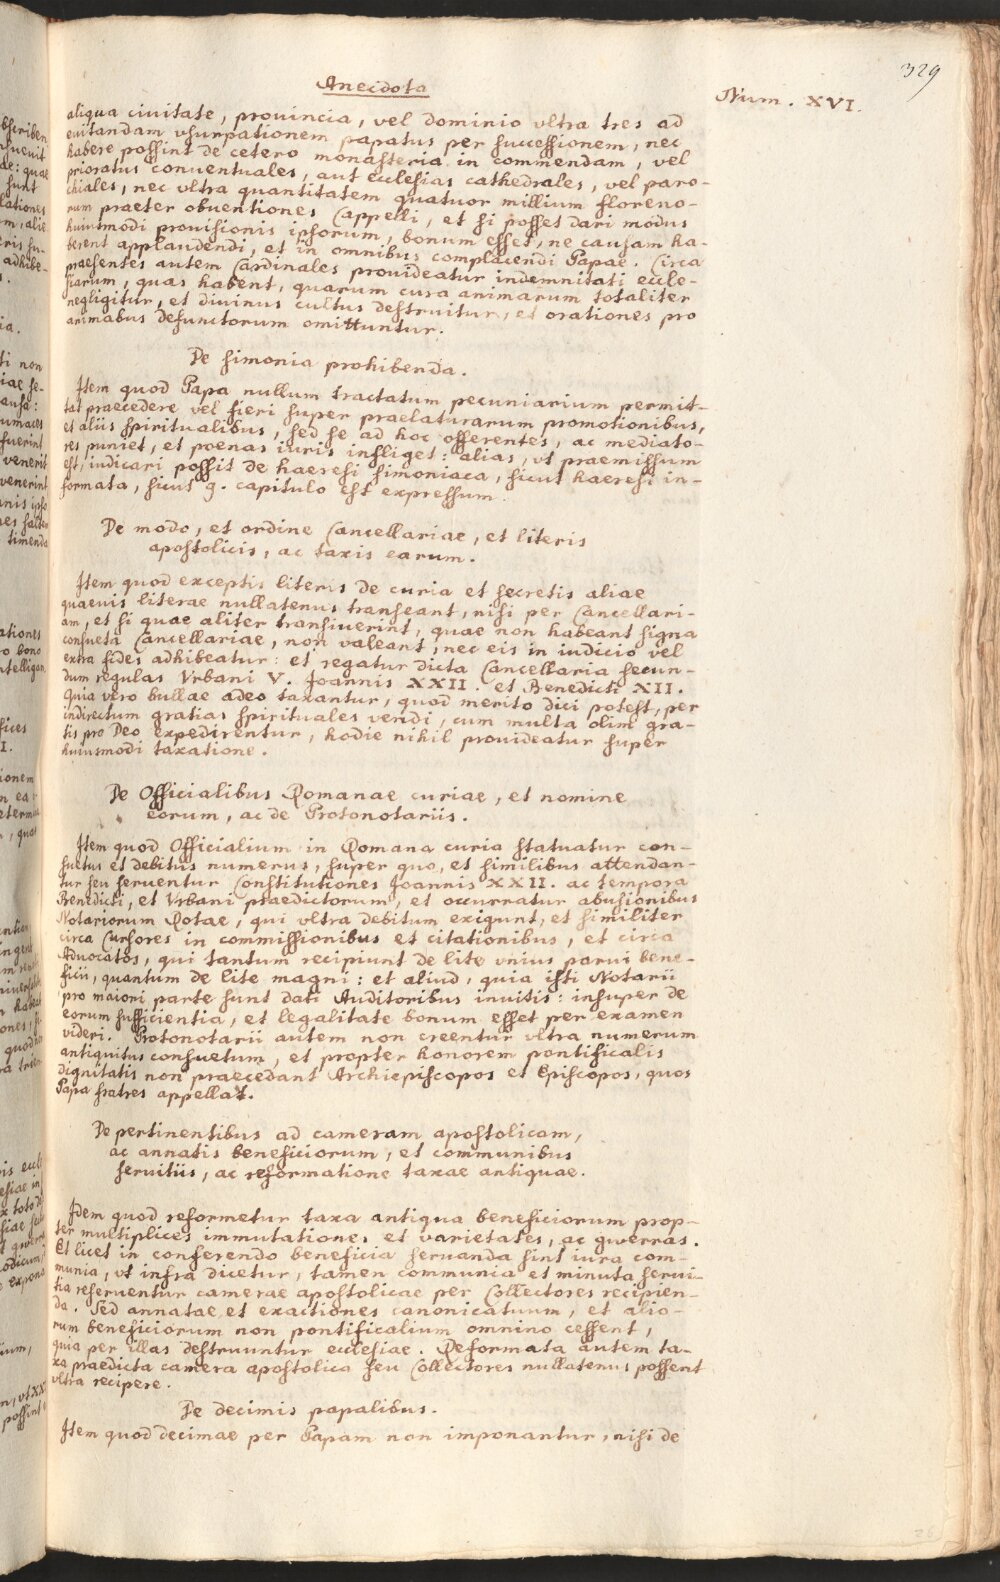 329
Anecdota
Num. XVI.
aliqua ciuitate, prouincia, vel dominio vltra tres ad
euitandam vsurpationem papatus per successionem, nec
habere possint de cetero monasteria in commendam, vel
prioratus conuentuales, aut ecclesias cathedrales, vel paro-
chiales, nec vltra quantitatem quatuor millium floreno-
rum praeter obuentiones Cappelli, et si posset dari modus
huiusmodi prouisionis ipsorum, bonum esset, ne causam ha-
berent applaudendi, et in omnibus complacendi Papae. Circa
praesentes autem Cardinales prouideatur indemnitati eccle-
siarum, quas habent, quarum cura animarum totaliter
negligitur, et diuinus cultus destruitur, et orationes pro
animabus defunctorum omittuntur.
De simonia prohibenda.
Item quod Papa nullum tractatum pecuniarium permit-
tat praecedere vel fieri super praelaturarum promotionibus,
et aliis spiritualibus, sed se ad hoc offerentes, ac mediato-
res puniet, et poenas iuris infliget: alias, vt praemissum
est, iudicari possit de haeresi simoniaca, sicut haeresi in-
formata, sicut 9. capitulo est expressum.
De modo, et ordine Cancellariae, et literis
apostolicis, ac taxis earum.
Item quod exceptis literis de curia et secretis aliae
quaeuis literae nullatenus transeant, nisi per Cancellari-
am, et si quae aliter transiuerint, quae non habeant signa
consueta Cancellariae, non valeant, nec eis in iudicio vel
extra fides adhibeatur: et regatur dicta Cancellaria secun-
dum regulas Vrbani V. Joannis XXII. et Benedicti XII.
Quia vero bullae adeo taxantur, quod merito dici potest, per
indirectum gratias spirituales vendi, cum multa olim gra-
tis pro Deo expedirentur, hodie nihil prouideatur super
huiusmodi taxatione.
De Officialibus Romanae curiae, et nomine
eorum, ac de Protonotariis.
Item quod Officialium in Romana curia statuatur con-
suetus et debitus numerus, super quo, et similibus attendan-
tur seu seruentur Constitutiones Joannis XXII. ac tempora
Benedicti, et Vrbani praedictorum, et occurratur abusionibus
Notariorum Rotae, qui vltra debitum exigunt, et similiter
circa Cursores in commissionibus et citationibus, et circa
Aduocatos, qui tantum recipiunt de lite vnius parui bene-
ficii, quantum de lite magni: et aliud, quia isti Notarii
pro maiori parte sunt dati Auditoribus inuitis: insuper de
eorum sufficientia, et legalitate bonum esset per examen
videri. Protonotarii autem non creentur vltra numerum
antiquitus consuetum, et propter honorem pontificalis
dignitatis non praecedant Archiepiscopos et Episcopos, quos
Papa fratres appellat.
De pertinentibus ad cameram apostolicam,
ac annatis beneficiorum, et communibus
seruitiis, ac reformatione taxae antiquae.
Idem quod reformetur taxa antiqua beneficiorum prop-
ter multiplices immutationes et varietates, ac gwerras.
Et licet in conferendo beneficia seruanda sint iura com-
munia, vt infra dicetur, tamen communia et minuta serui-
tia reseruentur camerae apostolicae per Collectores recipien-
da. Sed annatae et exactiones canonicatuum, et alio-
rum beneficiorum non pontificalium omnino cessent,
quia per illas destruuntur ecclesiae. Reformata autem ta-
xa praedicta camera apostolica seu Collectores nullatenus possent
vltra recipere.
De decimis papalibus.
Item quod decimae per Papam non imponantur, nisi de